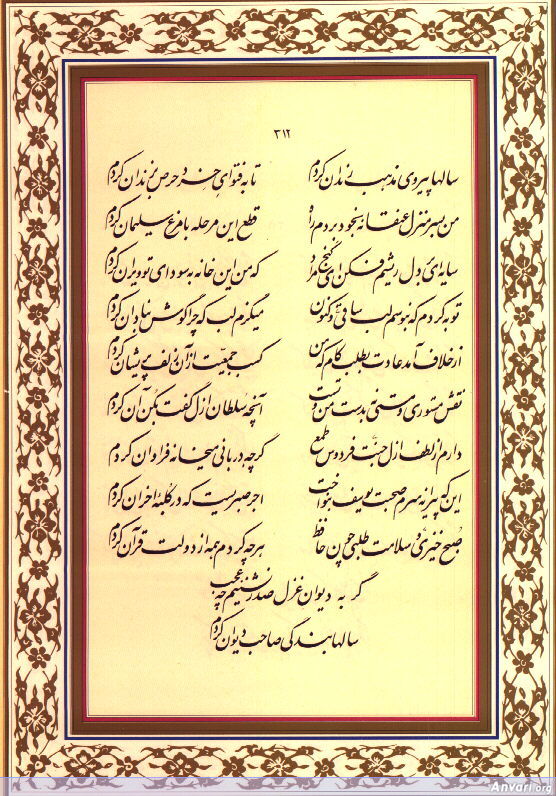 ۳۱۲
سالها پیروی مذهب رندان کردم تا به فتوای خرد حرص بزندان کردم
من بسر منزل عنقا نه بخود بردم راه قطع این مرحله با مرغ سلیمان کردم
سایه‌ای بر دل ریشم فکن ای گنج مراد که من این خانه به سودای تو ویران کردم
توبه کردم که نبوسم لب ساقی و کنون میگزم لب که چرا گوش بنادان کردم
از خلاف آمد عادت بطلب کام که من کسب جمعیت از آن زلف پریشان کردم
نقش مستوری و مستی نه بدست من و تست آنچه سلطان ازل گفت بکن آن کردم
دارم از لطف ازل جنت فردوس طمع گرچه دربانی میخانه فراوان کردم
این که پیرانه سرم صحبت یوسف بنواخت اجر صبریست که در کلبهٔ احزان کردم
صبح خیزی و سلامت طلبی چون حافظ هر چه کردم همه از دولت قرآن کردم
گر به دیوان غزل صدر نشینم چه عجب
سالها بندگی صاحب دیوان کردم
Anvari.org